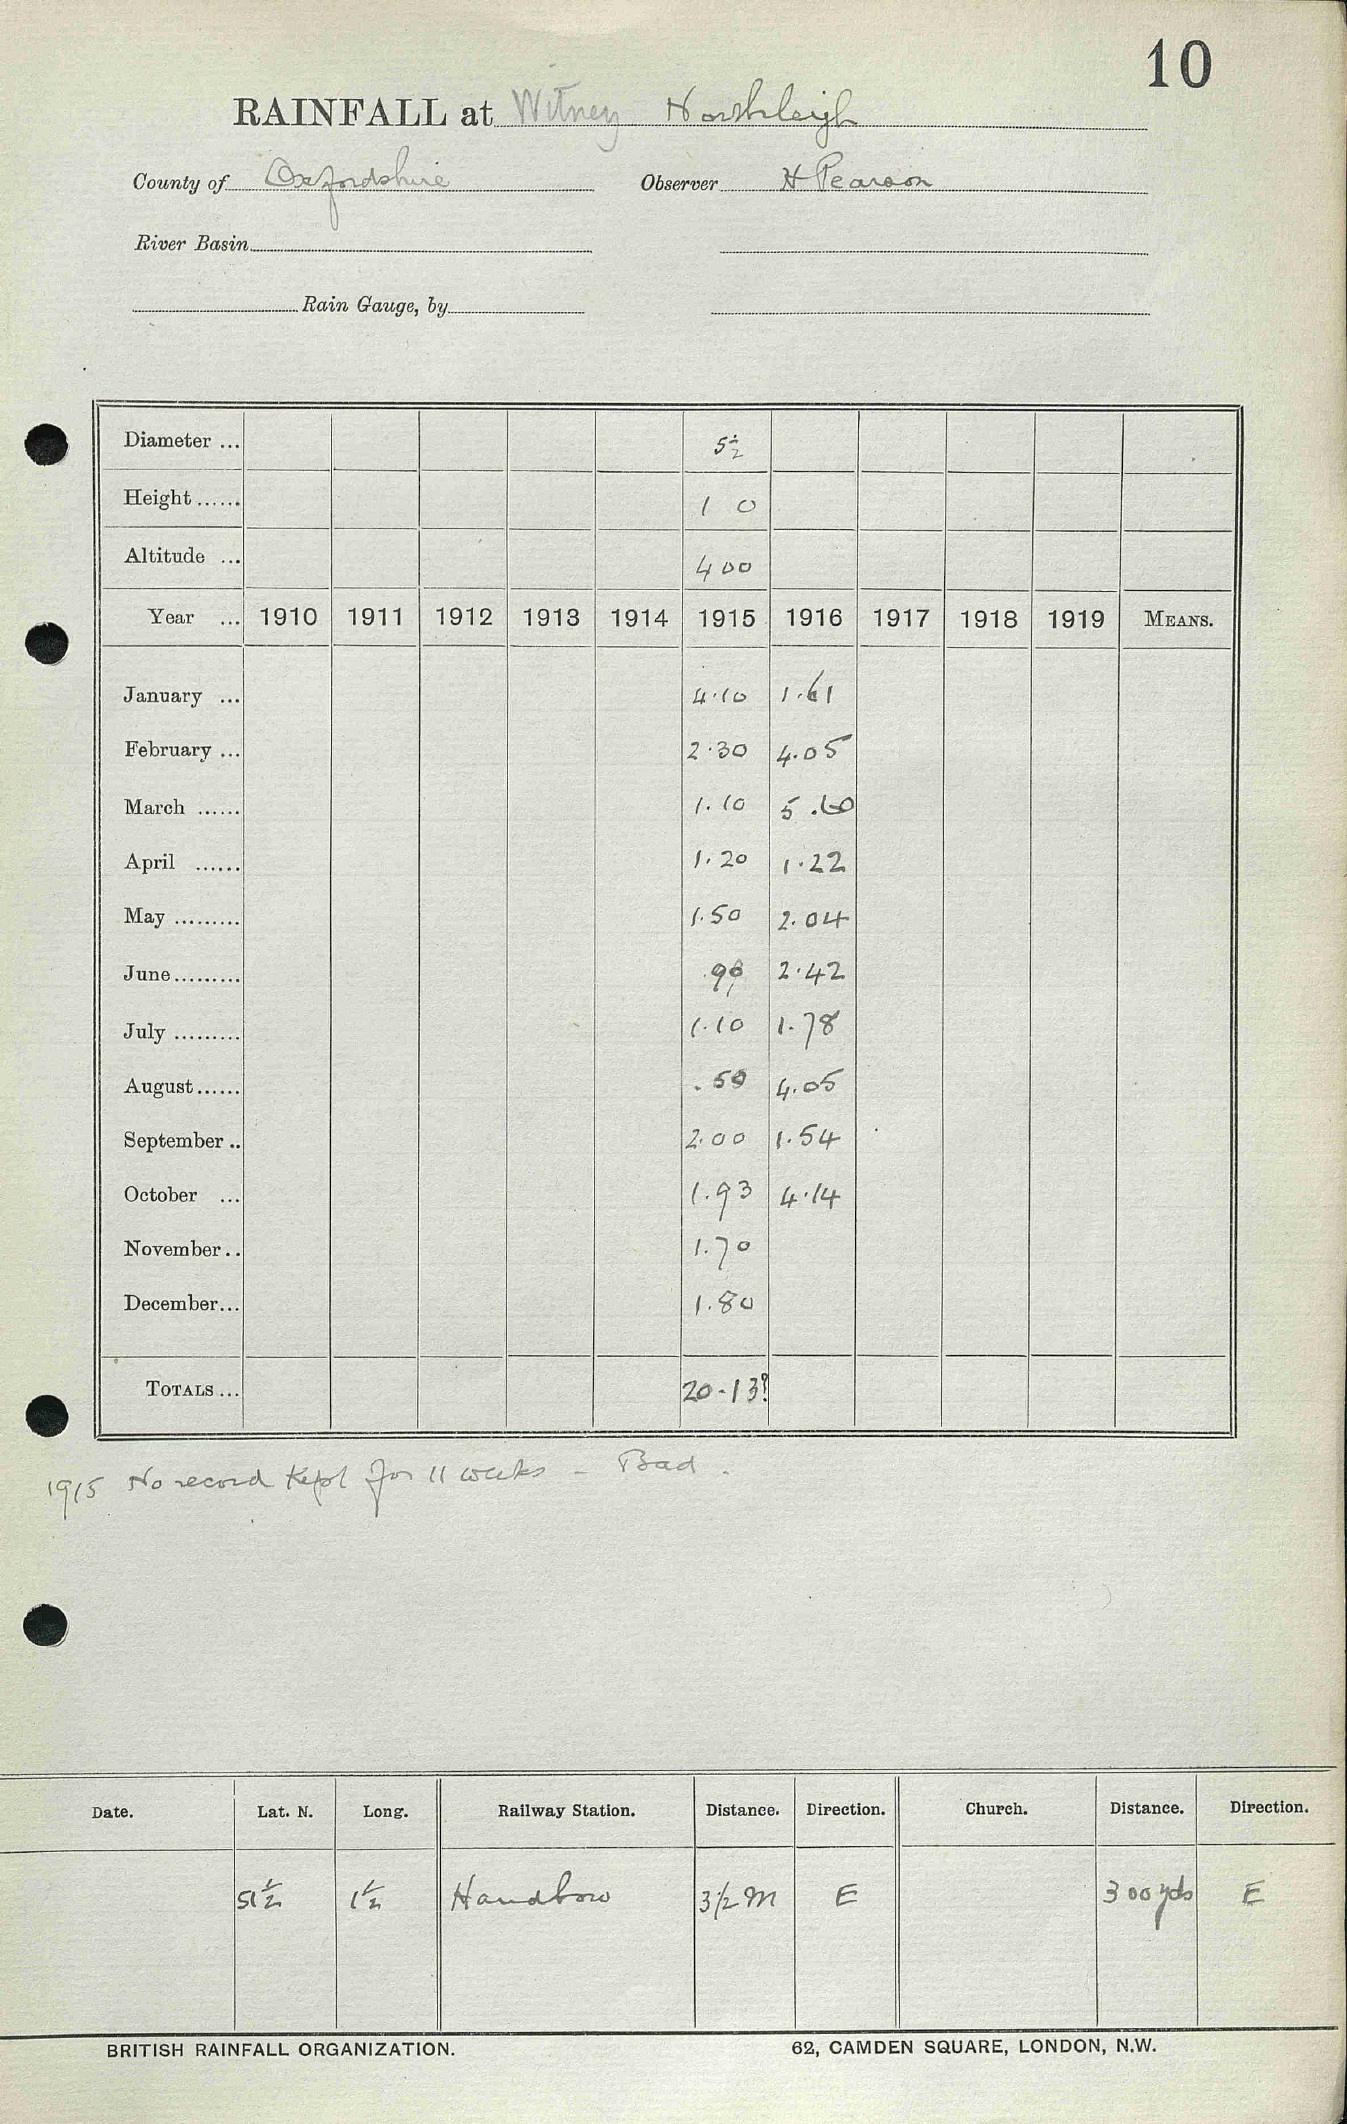 10
RAINFALL at Witney Northleigh
County of Oxfordshire Observer H Pearson
River Basin
Rain Gauge, by
Diameter ... 5½
Height ...... 1 0
Altitude ... 400
Year ... 1910 1911 1912 1913 1914 1915 1916 1917 1918 1919 MEANS.
January ... 4.10 1.61
February ... 2.30 4.05
March ...... 1.10 5.60
April ...... 1.20 1.22
May ......... 1.50 2.04
June ......... .90 2.42
July ......... 1.10 1.78
August ...... .50 4.05
September .. 2.00 1.54
October ... 1.93 4.14
November .. 1.70
December ... 1.80
TOTALS ... 20.13?
1915 No record kept for 11 weeks - Bad.
Date. Lat. N. Long. Railway Station. Distance. Direction. Church. Distance. Direction.
51½ 1½ Handboro 3½ m E 300 yds E
BRITISH RAINFALL ORGANIZATION. 62, CAMDEN SQUARE, LONDON, N.W.